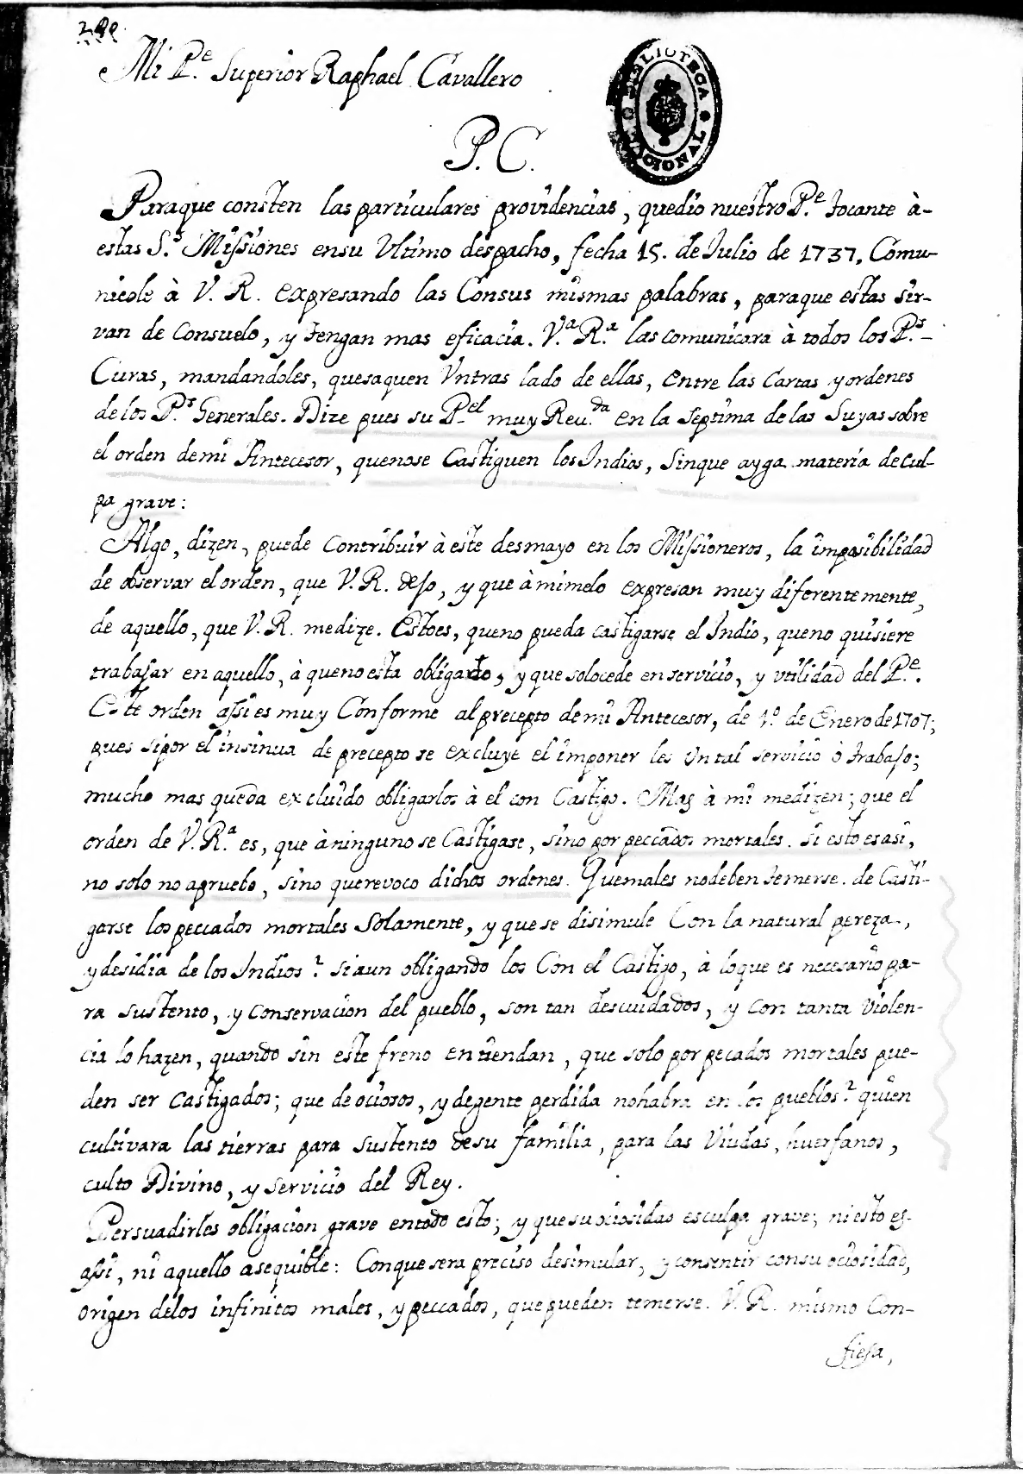 Mi P.e Superior Raphael Cavallero
BIBLIOTECA NACIONAL
P. C.
Paraque consten las particulares providencias, quedio nuestro P.e tocante à-
estas S.s Missiones ensu Ultimo despacho, fecha 15. de Julio de 1737. Comu-
nicole à V. R. expresando las Consus mismas palabras, paraque estas sir-
van de consuelo, y tengan mas eficacia. V.a R.a las comunicara à todos los P.s -
Curas, mandandoles, quesaquen Vntras lado de ellas, entre las Cartas y ordenes
de los P.s Generales. Dize pues su P.el muy Reu.da en la septima de las Suyas sobre
el orden demi Antecesor, quenose Castiguen los Indios, sinque ayga materia decul-
pa grave:
Algo, dizen, puede Contribuir à este desmayo en los Missioneros, la imposibilidad
de observar el orden, que V. R. dejo, y que à mimelo expresan muy diferentemente,
de aquello, que V. R. medize. Estoes, queno pueda castigarse el Indio, queno quisiere
trabajar en aquello, à queno esta obligado, y que solocede en servicio, y utilidad del P.e.
Este orden assi es muy Conforme al precepto demi Antecesor, de 1.o de Enero de 1707;
pues sipor el insinua de precepto se excluye el imponer les Un tal servicio ò trabajo;
mucho mas queda excluido obligarlos à el con Castigo. Mas à mi medizen; que el
orden de V. R.a es, que àninguno se Castigase, sino por peccados mortales. Si esto es asi,
no solo no apruebo, sino querevoco dichos ordenes. Quemales nodeben temerse. de Casti-
garse los peccados mortales Solamente, y que se disimule Con la natural pereza,
y desidia de los Indios? si aun obligando los Con el Castigo, à loque es necesario pa-
ra sustento, y conservacion del pueblo, son tan descuidados, y con tanta Violen-
cia lo hazen, quando sin este freno entiendan, que solo por pecados mortales pue-
den ser Castigados; que de ociosos, y degente perdida nohabra en los pueblos? quien
cultivara las tierras para sustento desu familia, para las Viudas, huerfanos,
culto Divino, y servicio del Rey.
Persuadirles obligacion grave entodo esto; y que su ociosidad esculpa grave; ni esto es-
assi, ni aquello asequible: Conque sera preciso desimular, y consentir consu ociosidad,
origen delos infinitos males, y peccados, que pueden temerse. V. R. mismo Con-
fiesa,